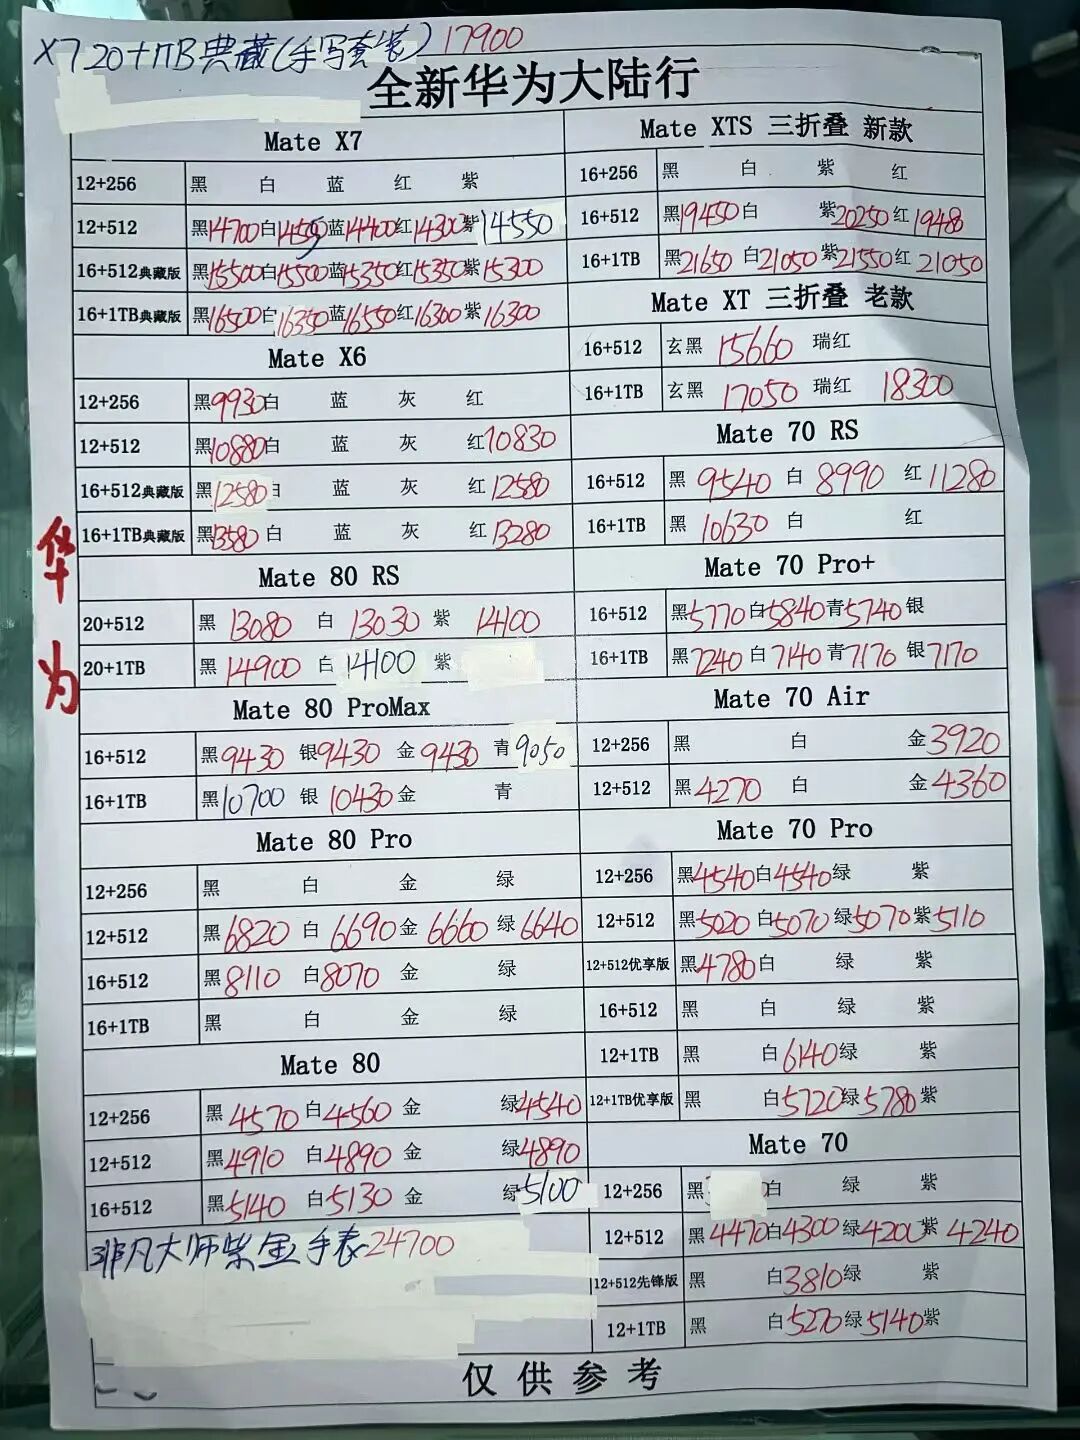 X7 20+1TB典藏(手写套装)17900
全新华为大陆行
Mate X7
12+256 黑 白 蓝 红 紫
12+512 黑14700白蓝14400红14300紫14550
16+512典藏版 黑15500白15500蓝15350红15350紫15300
16+1TB典藏版 黑16500白16350蓝16550红16300紫16300
Mate X6
12+256 黑9930白 蓝 灰 红
12+512 黑10880白 蓝 灰 红10830
16+512典藏版 黑12580 蓝 灰 红12580
16+1TB典藏版 黑13580白 蓝 灰 红13280
Mate 80 RS
20+512 黑 13080 白 13030 紫 14100
20+1TB 黑 14900 白 14100 紫
Mate 80 ProMax
16+512 黑9430 银9430 金 9430 青9050
16+1TB 黑10700 银 10430金 青
Mate 80 Pro
12+256 黑 白 金 绿
12+512 黑6820 白 6690金 6660绿 6640
16+512 黑8110 白8070 金 绿
16+1TB 黑 白 金 绿
Mate 80
12+256 黑4570白4560 金 绿4540
12+512 黑4910 白4890 金 绿4890
16+512 黑5140 白5130 金 绿5100
非凡大师紫金手表24700
Mate XTS 三折叠 新款
16+256 黑 白 紫 红
16+512 黑19450白 紫20250红19480
16+1TB 黑21650 白21050紫21550红 21050
Mate XT 三折叠 老款
16+512 玄黑 15660 瑞红
16+1TB 玄黑 17050 瑞红 18300
Mate 70 RS
16+512 黑 9540 白 8990 红11280
16+1TB 黑 10630 白 红
Mate 70 Pro+
16+512 黑5770白5840青5740银
16+1TB 黑7240 白7140青7170 银7170
Mate 70 Air
12+256 黑 白 金3920
12+512 黑4270 白 金4360
Mate 70 Pro
12+256 黑4540白4540绿 紫
12+512 黑5020 白5070 绿5070紫5110
12+512优享版 黑4780白 绿 紫
16+512 黑 白 绿 紫
12+1TB 黑 白6140绿 紫
12+1TB优享版 黑 白5720绿5780紫
Mate 70
12+256 黑 白 绿 紫
12+512 黑4470白4300绿4200紫 4240
12+512先锋版 黑 白3810绿 紫
12+1TB 黑 白5270绿5140紫
仅供参考
华为